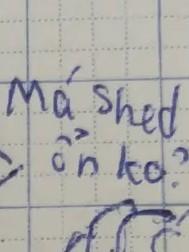 Má Shed
ổn ko?